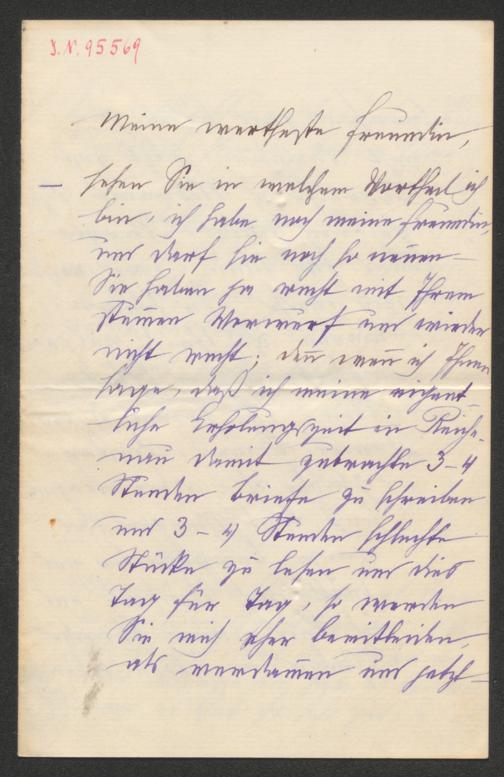 J.N. 95569
Meine wertheste Freundin,
sehen Sie in welchem Vortheil ich
bin, ich habe noch meine Freundin,
und darf sie noch so nennen –
Sie haben ja recht mit Ihrem
stummen Vorwurf und wieder
nicht recht; denn wenn ich Ihnen
sage, daß ich meine eigent
liche Erholungszeit in Reiche-
nau damit zubrachte 3–4
Stunden Briefe zu schreiben
und 3–4 Stunden schlechte
Stücke zu lesen und dies
Tag für Tag, so werden
Sie mich eher bemitleiden,
als verdammen und jetzt –